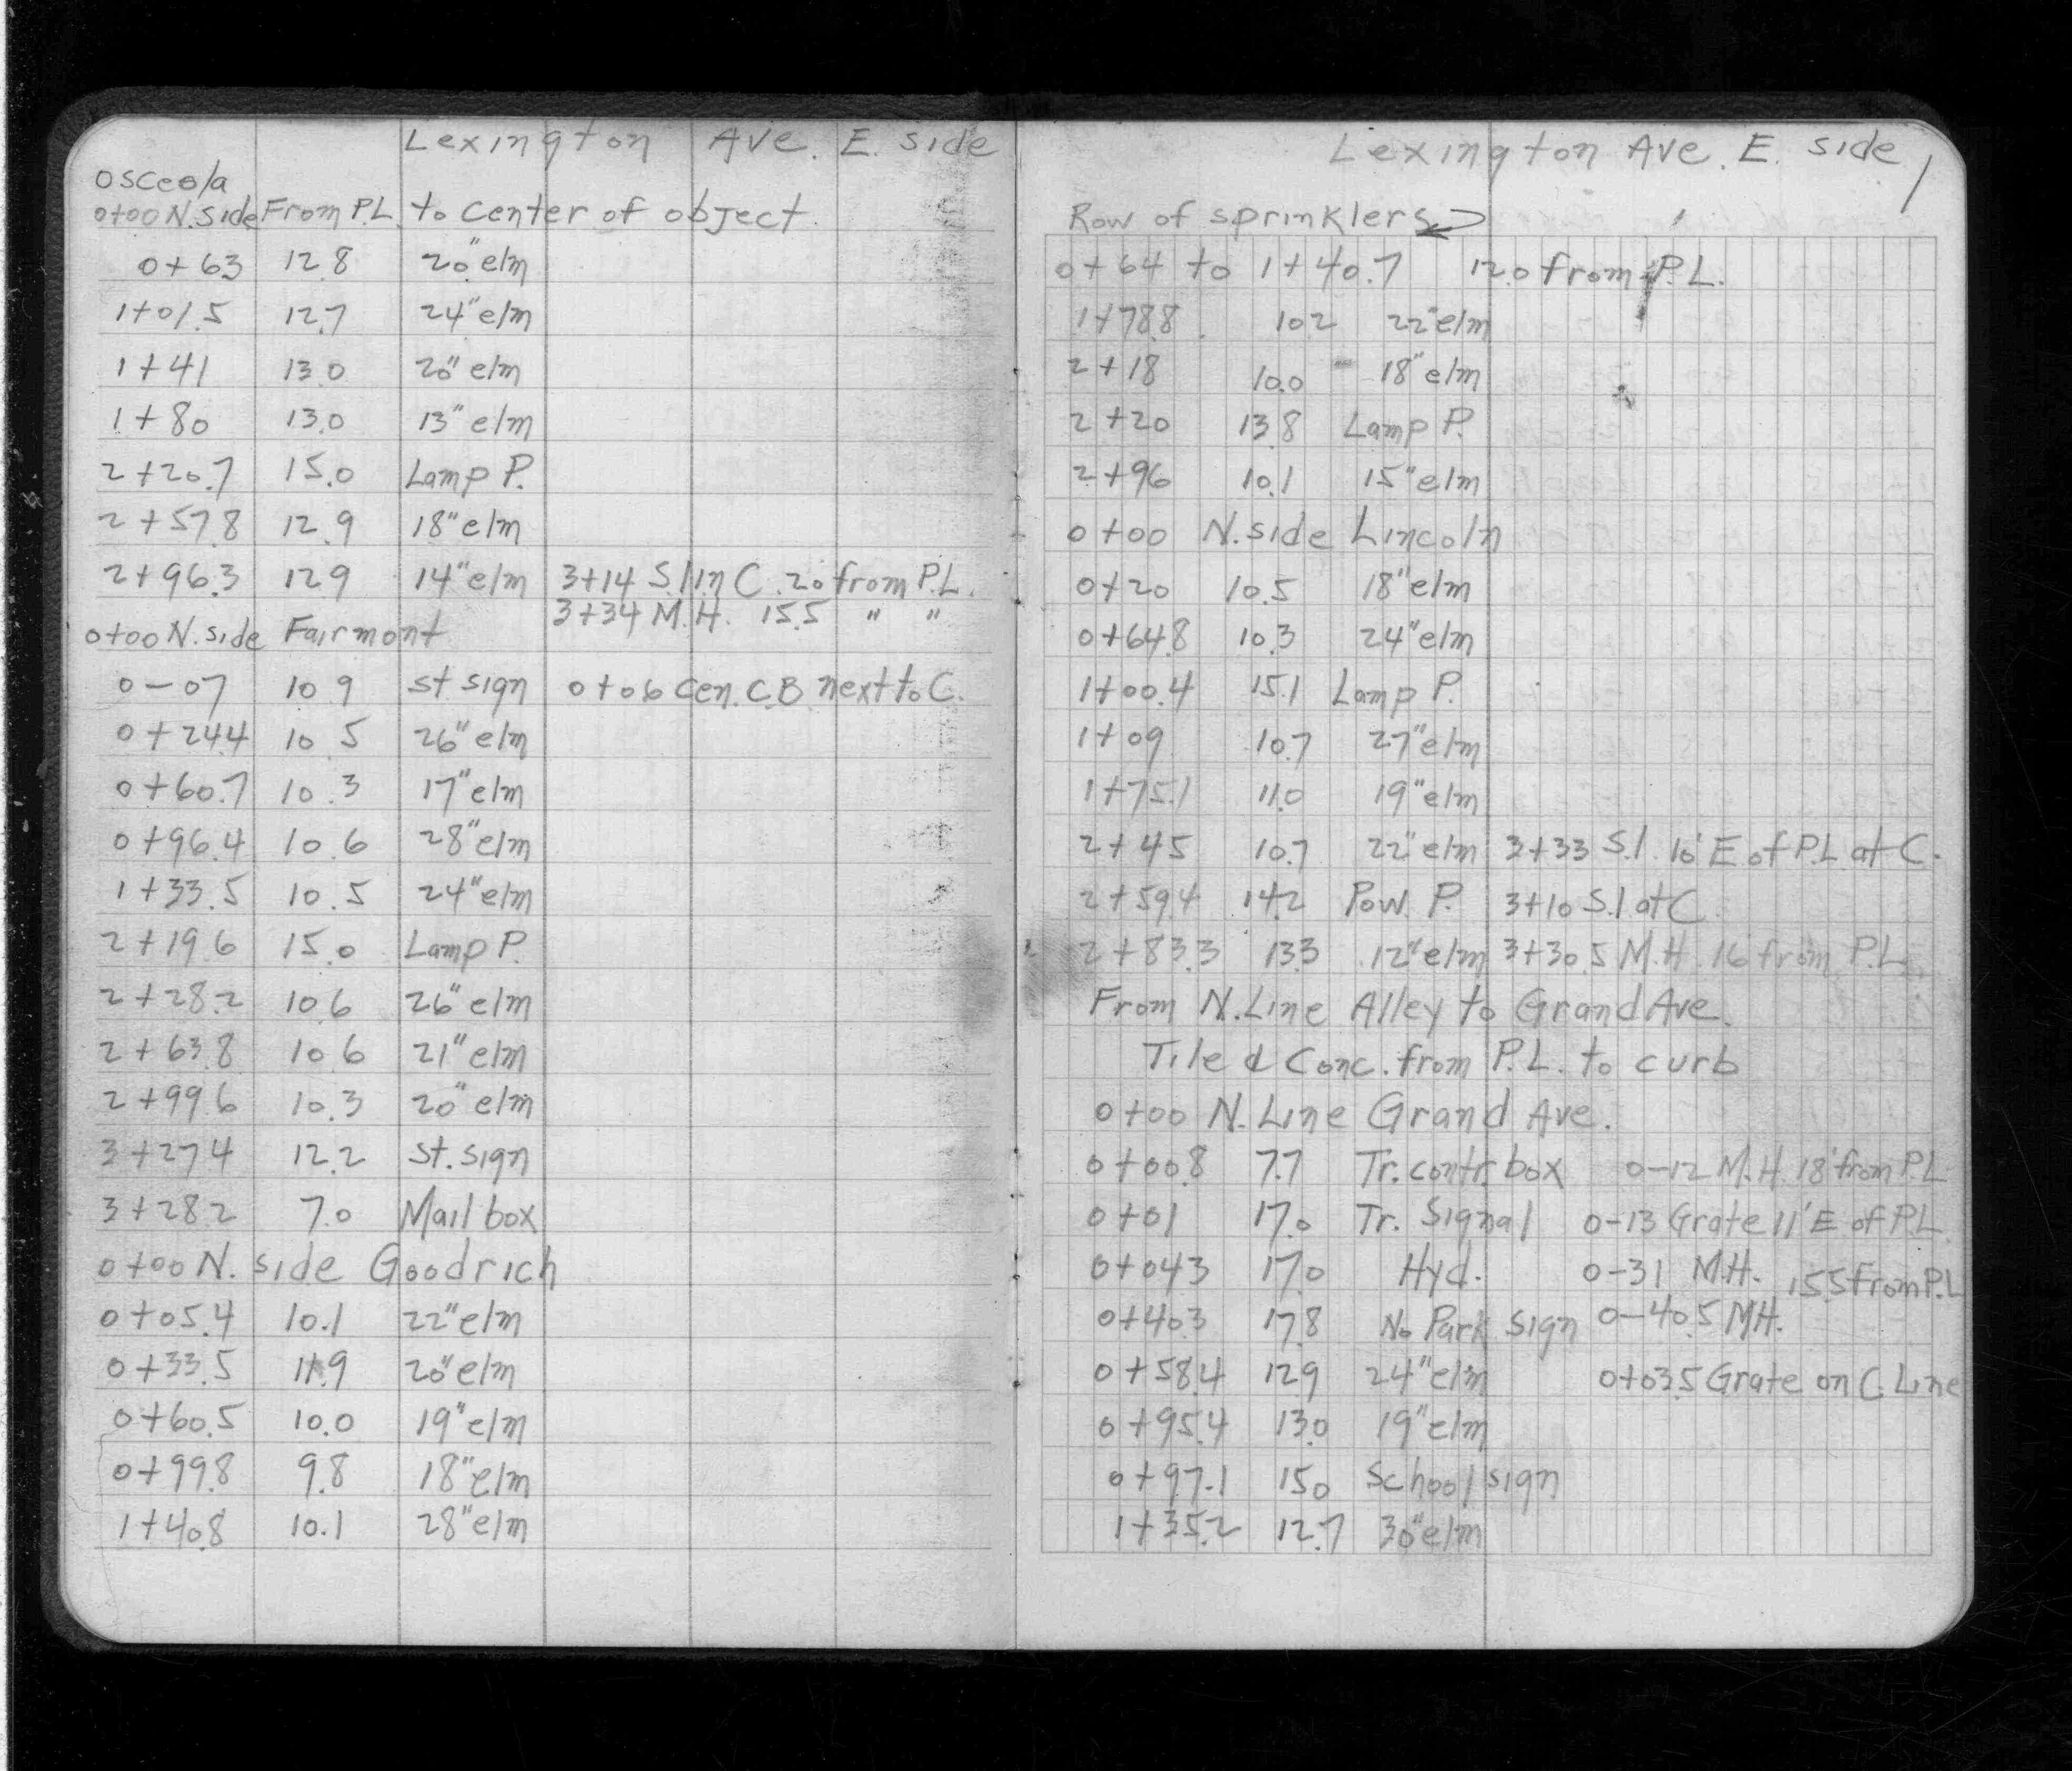 Lexington Ave. E. side
Osceola
0+00 N. side From P.L. to center of object
0+63 12.8 20" elm
1+01.5 12.7 24" elm
1+41 13.0 20" elm
1+80 13.0 13" elm
2+20.7 15.0 Lamp P.
2+57.8 12.9 18" elm
2+96.3 12.9 14" elm 3+14 S.l. in C. 20 from P.L.
3+34 M.H. 15.5 " "
0+00 N. side Fairmont
0-07 10.9 st sign 0+06 Cen. C.B next to C.
0+24.4 10.5 26" elm
0+60.7 10.3 17" elm
0+96.4 10.6 28" elm
1+33.5 10.5 24" elm
2+19.6 15.0 Lamp P.
2+28.2 10.6 26" elm
2+63.8 10.6 21" elm
2+99.6 10.3 20" elm
3+27.4 12.2 St. sign
3+28.2 7.0 Mail box
0+00 N. side Goodrich
0+05.4 10.1 22" elm
0+33.5 11.9 20" elm
0+60.5 10.0 19" elm
0+99.8 9.8 18" elm
1+40.8 10.1 28" elm
Lexington Ave. E. side 1
Row of sprinklers
0+64 to 1+40.7 12.0 from P.L.
1+78.8 10.2 22" elm
2+18 10.0 18" elm
2+20 13.8 Lamp P.
2+96 10.1 15" elm
0+00 N. side Lincoln
0+20 10.5 18" elm
0+64.8 10.3 24" elm
1+00.4 15.1 Lamp P.
1+09 10.7 27" elm
1+75.1 11.0 19" elm
2+45 10.7 22" elm 3+33 S.l. 16' E of P.L. at C.
2+59.4 14.2 Pow. P. 3+10 S.l at C
2+83.3 13.3 12" elm 3+30.5 M.H. 16 from P.L.
From N. Line Alley to Grand Ave.
Tile & Conc. from P.L. to curb
0+00 N. Line Grand Ave.
0+00.8 7.7 Tr. contr. box 0-12 M.H. 18' from P.L
0+01 17.0 Tr. Signal 0-13 Grate 11' E of P.L.
0+04.3 17.0 Hyd. 0-31 M.H. 15.5 from P.L
0+40.3 17.8 No Park sign 0-40.5 MH.
0+58.4 12.9 24" elm 0+03.5 Grate on C. Line
0+95.4 13.0 19" elm
0+97.1 15.0 School sign
1+35.2 12.7 30" elm